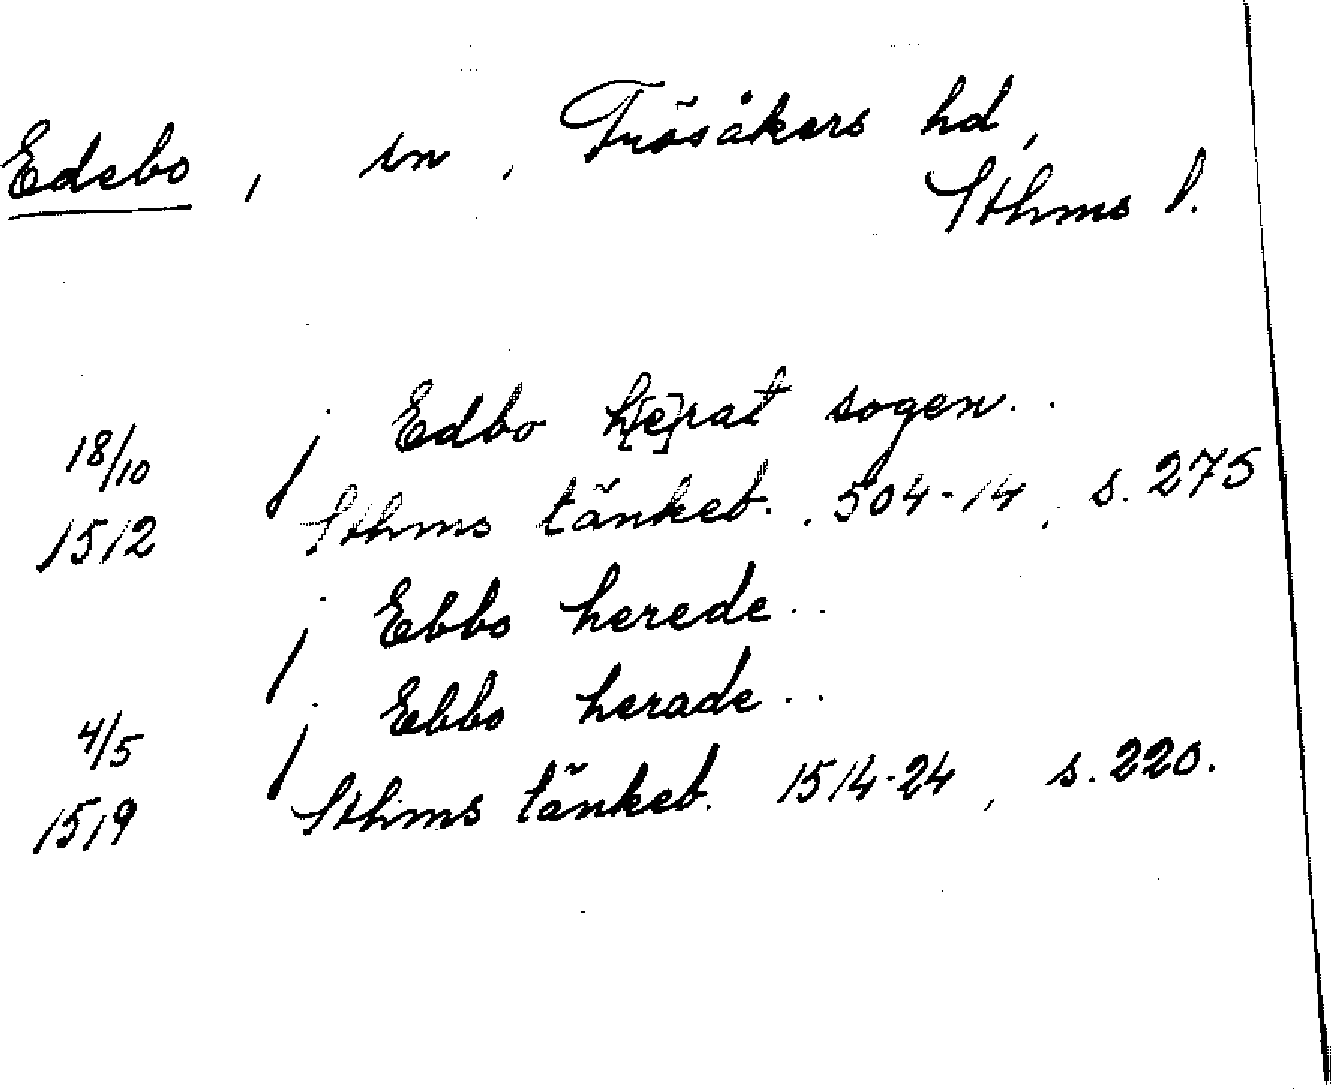 Edebo, sn, Frösåkers hd,
Sthms l.
j Edbo h[e]rat sogen..
18/10 1512 Sthms tänkeb. 1504-14, s. 275
j Ebbo herede..
j Ebbo herade..
4/5 1519 Sthms tänkeb. 1514-24, s. 220.